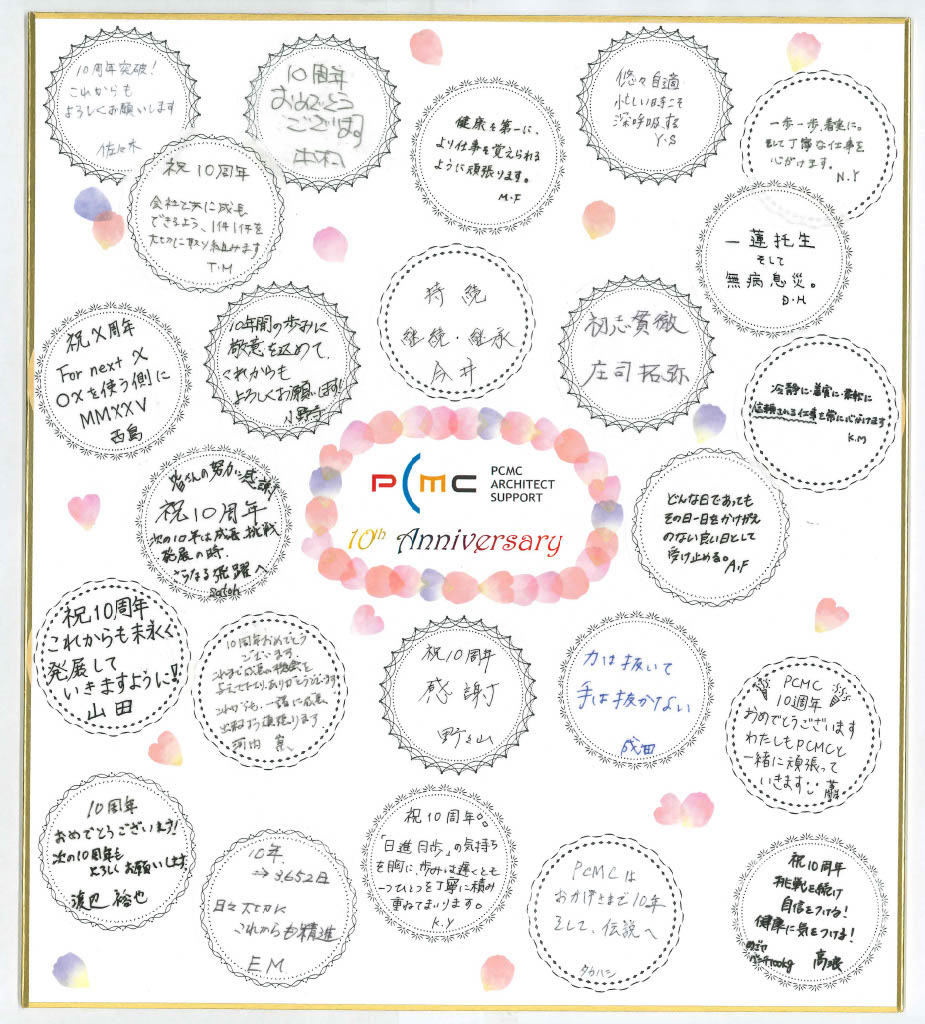 10周年突破!
これからも
よろしくお願いします
佐々木
10周年
おめでとう
ございます。
健康を第一に、
より仕事を覚えられる
ように頑張ります。
M・F
悠々自適
忙しい時こそ
深呼吸する
Y・S
一歩一歩、着実に。
そして丁寧な仕事を
心がけます。
N.Y
祝10周年
会社と共に成長
できるよう、1件1件を
大切に取り組みます
T・M
一蓮托生
そして
無病息災。
D・H
祝X周年
For next X
OXを使う側に
MMXXV
西島
10年間の歩みに
敬意を込めて、
これからも
よろしくお願いします!
小野寺
持続
継続・継承
今井
初志貫徹
庄司拓弥
冷静に・着実に・柔軟に
信頼される仕事を常に心がけます
K.M
皆さんの努力に感謝
祝10周年
次の10年は成長 挑戦
発展の時.
さらなる飛躍へ
Satoh
PCMC
PCMC
ARCHITECT
SUPPORT
10th Anniversary
どんな日であっても
その日一日をかけがえ
のない良い日として
受け止める。A.F
祝10周年
これからも末永く
発展して
いきますように!!
山田
10周年おめでとう
ございます.
これまで成長の機会を
与えて下さり、ありがとうございます
これからも、一緒に成長
出来るよう頑張ります
河内
祝10周年
感謝
野々山
力は抜いて
手は抜かない
成田
PCMC
10周年
おめでとうございます
わたしもPCMCと
一緒に頑張って
いきます
10周年
おめでとうございます!
次の10周年も
よろしくお願いします.
渡辺 裕也
10年.
→3,652日
日々大切に
これからも精進
E M.
祝10周年。
「日進月歩」の気持ち
を胸に、歩みは遅くとも
一つひとつを丁寧に積み
重ねてまいります。
K.Y
PCMCは
おかげさまで10年
そして、伝説へ
タカハシ
祝10周年
挑戦を続け
自信をつける!
健康に気をつける!
めざせ
ベンチ100kg
高濱